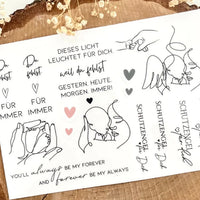 DIESES LICHT
LEUCHTET FÜR DICH
Du
fehlst
Du
fehlst
weil du fehlst
GESTERN HEUTE
MORGEN IMMER!
FÜR
IMMER
FÜR
IMMER
SCHUTZENGEL
SCHUTZENGEL
SCHUTZENGEL
YOU'LL always BE MY FOREVER
AND forever BE MY ALWAYS